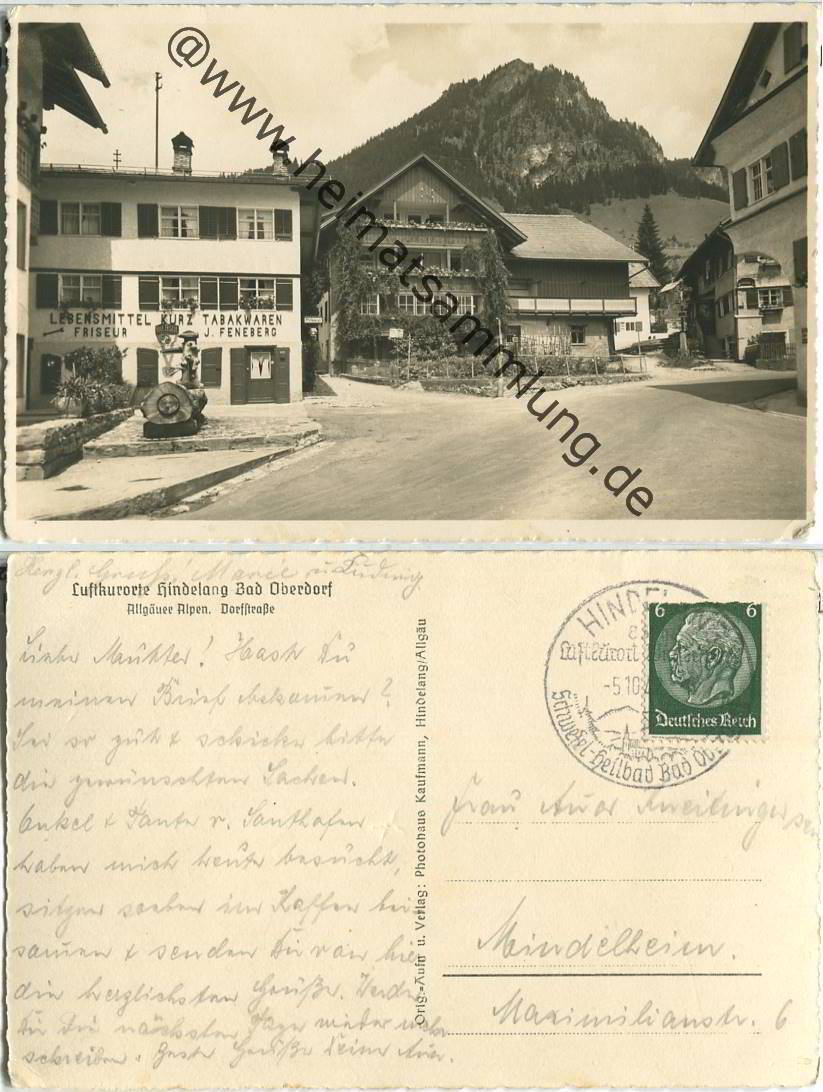 @www.heimatsammlung.de
LEBENSMITTEL KURZ TABAKWAREN
FRISEUR J. FENEBERG
Herzl. Grüße! Marie u. Ludwig.
Luftkurorte Hindelang Bad Oberdorf
Allgäuer Alpen. Dorfstraße
Liebe Mutter! Hast Du
meinen Brief bekommen?
Sei so gut & schicke bitte
die gewünschten Sachen.
Onkel & Tante v. Sonthofen
haben mich heute besucht,
sitzen soeben im Kaffee bei-
sammen & senden Dir von hier
die herzlichsten Grüße. Werde
Dir die nächsten Tage wieder
schreiben. Gruß Deine
Orig.-Aufn u. Verlag: Photohaus Kaufmann, Hindelang/Allgäu
HINDEL
Luftkurort
-5.10.
Schwefel-Heilbad Bad Ob
6 6
Deutsches Reich
Frau
Mindelheim.
Maximilianstr. 6